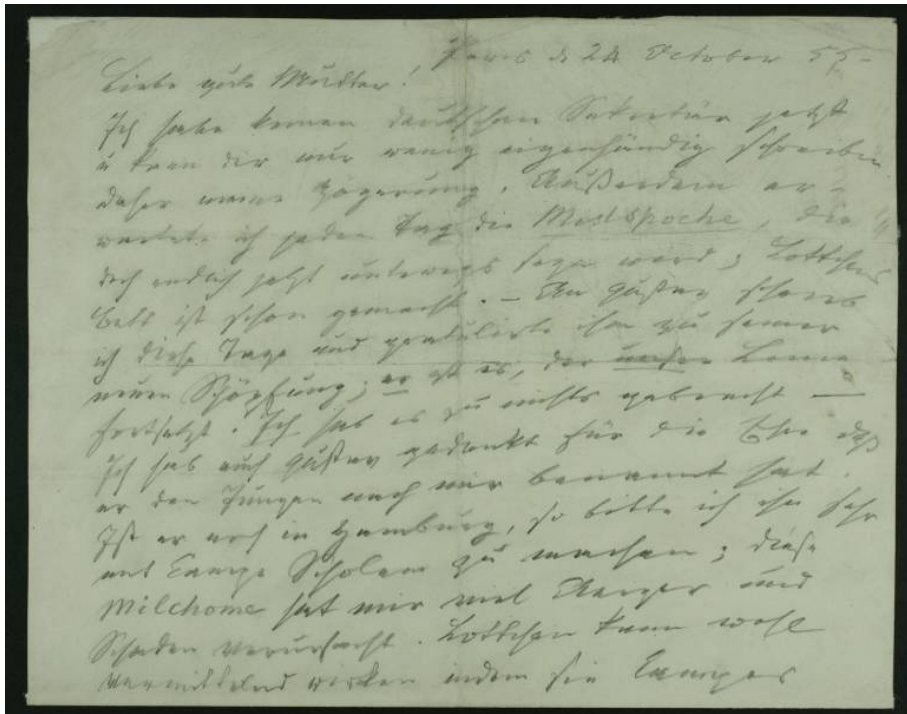 Paris d 24 October 55.
Liebe gute Mutter!
Ich habe keinen deutschen Sekretär jetzt
u kann dir nur wenig eigenhändig schreiben
daher meine Zögerung. Außerdem er-
wartete ich jeden Tag die Mischpoche, die
doch endlich jetzt unterwegs seyn wird; Lottchens
Bett ist schon gemacht. – An Gustav schrieb
ich diese Tage und gratulirte ihm zu seiner
neuen Schöpfung; er ist es, der unsere Linie
fortsetzt. Ich hab es zu nichts gebracht —
Ich hab auch Gustav gedankt für die Ehre daß
er den Jungen nach mir benannt hat.
Ist er noch in Hamburg, so bitte ich ihn sehr
mit Campe Scholem zu machen; diese
Milchome hat mir viel Aerger und
Schaden verursacht. Lottchen kann wohl
vermittelnd wirken indem sie Campes